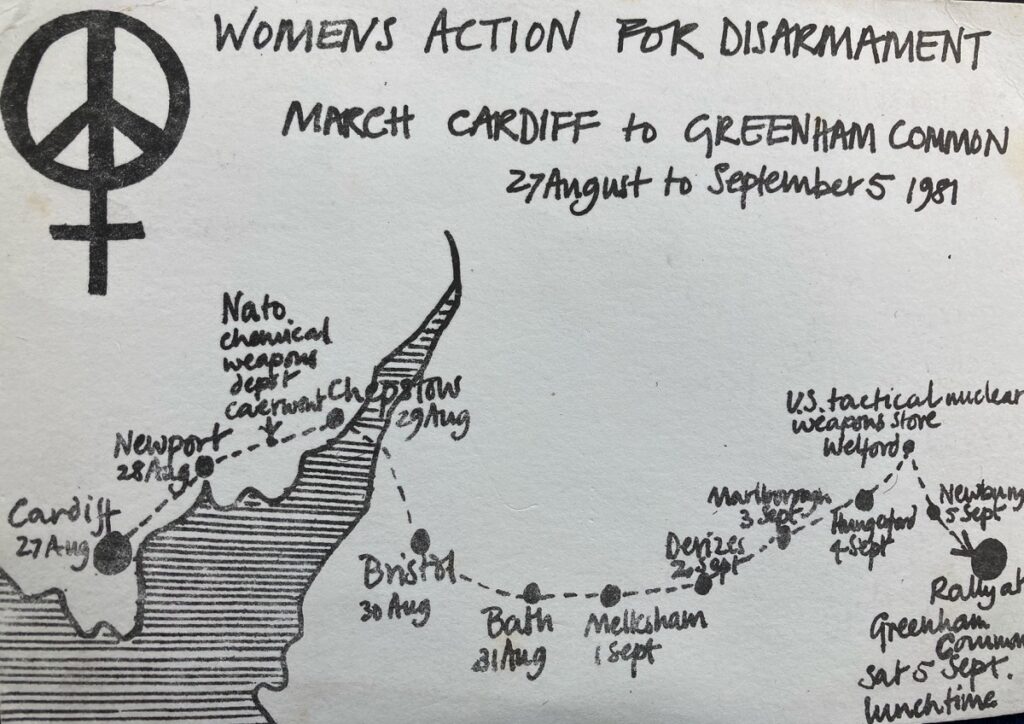 WOMENS ACTION FOR DISARMAMENT
MARCH CARDIFF to GREENHAM COMMON
27 August to September 5 1981
Nato.
chemical
weapons
depot
caerwent
Chepstow
29 Aug
Newport
28 Aug
Cardiff
27 Aug
Bristol
30 Aug
Bath
31 Aug
Melksham
1 Sept
Devizes
2 Sept
Marlborough
3 Sept
Hungerford
4 Sept
U.S. tactical nuclear
weapons store
Welford
Newbury
5 Sept
Rally at
Greenham
Common
Sat 5 Sept.
lunchtime